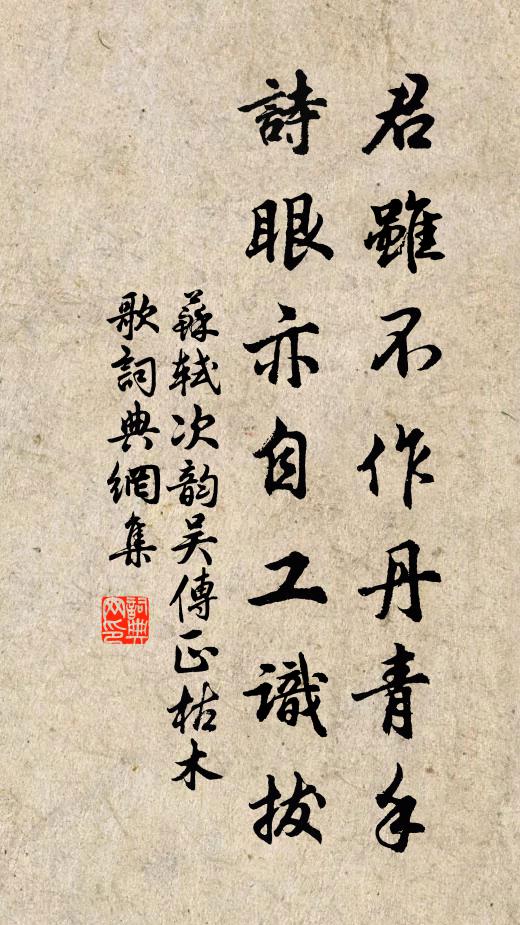 君雖不作丹青手
詩眼亦自工識拔
蘇軾次韵吴傳正枯木
歌詞典網集
詞典網印